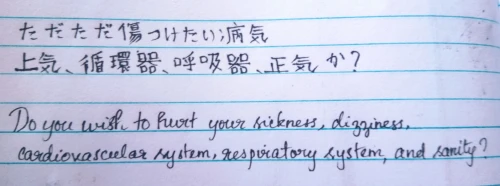 ただただ傷つけたい病気
上気、循環器、呼吸器、正気か?
Do you wish to hurt your sickness, digginess,
cardiovascular system, respiratory system, and sanity?